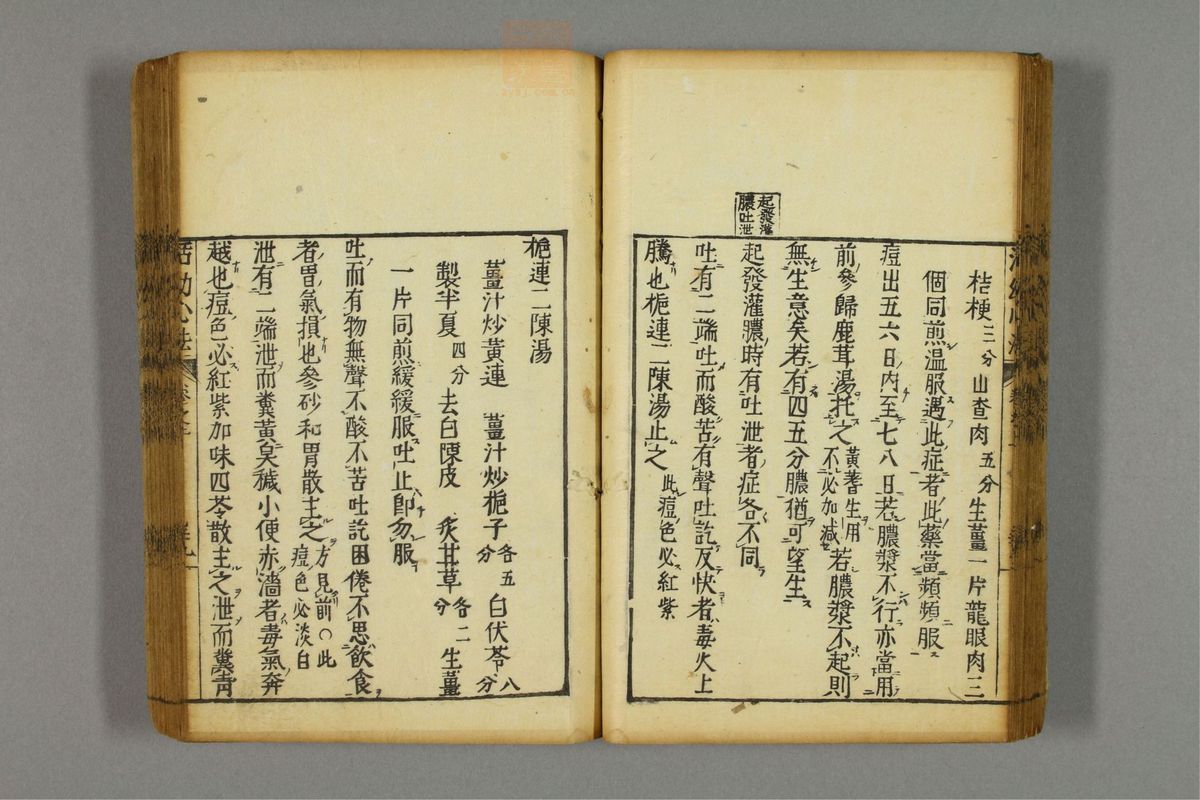 桔梗三分山查肉五分生薑一片龍眼肉三
個同煎温服遇此症者此藥當頻頻服
痘出五六日內至七八日若膿漿不行亦當用
前參歸鹿茸湯托之黃蓍生用不必加減若膿漿不起則
無生意矣若有四五分膿猶可望生
起發灌膿吐泄
起發灌膿時有吐泄者症各不同
吐有二端吐而酸苦有聲吐訖反快者毒火上
騰也梔連二陳湯止之此痘色必紅紫
梔連二陳湯
薑汁炒黃連 薑汁炒梔子各五分白伏苓八分
製半夏四分去白陳皮 炙甘草各二分 生薑
一片同煎緩緩服吐止卽勿服
吐而有物無聲不酸不苦吐訖困倦不思飲食
者胃氣損也參砂和胃散主之方見前○此痘色必淡白
泄有二端泄而糞黃臭穢小便赤濇者毒氣奔
越也痘色必紅紫加味四苓散主之泄而糞靑
活幼心法